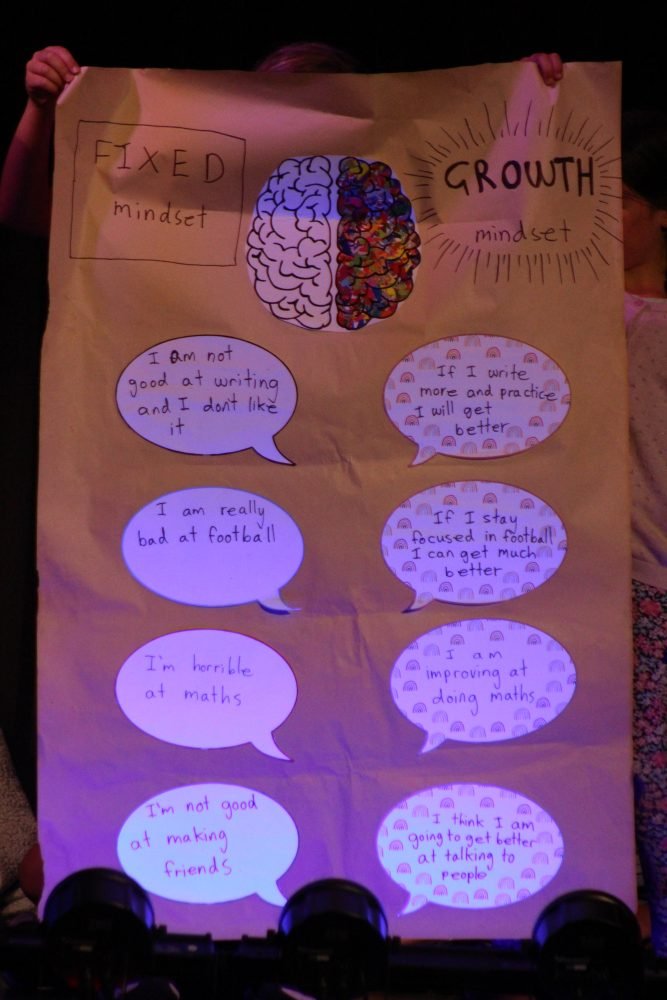 FIXED
mindset
GROWTH
mindset
I am not
good at writing
and I don't like
it
If I write
more and practice
I will get
better
I am really
bad at football
If I stay
focused in football
I can get much
better
I'm horrible
at maths
I am
improving at
doing maths
I'm not good
at making
friends
I think I am
going to get better
at talking to
people